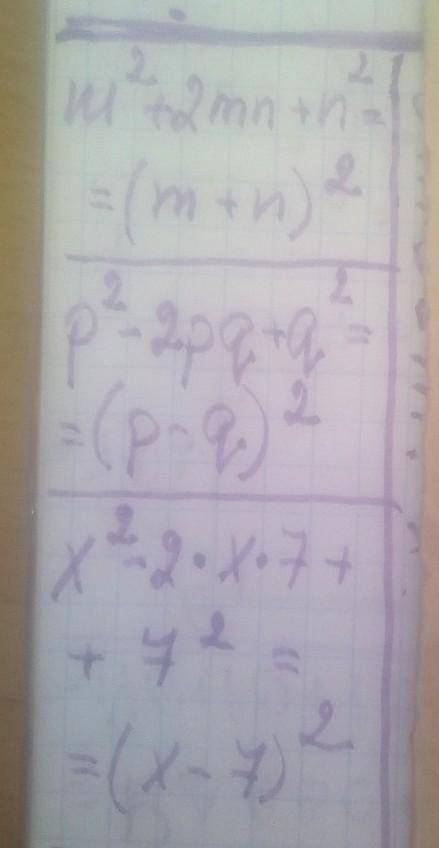 m² + 2mn + n² =
= (m + n)²
p² - 2pq + q² =
= (p - q)²
x² - 2 · x · 7 +
+ 7² =
= (x - 7)²